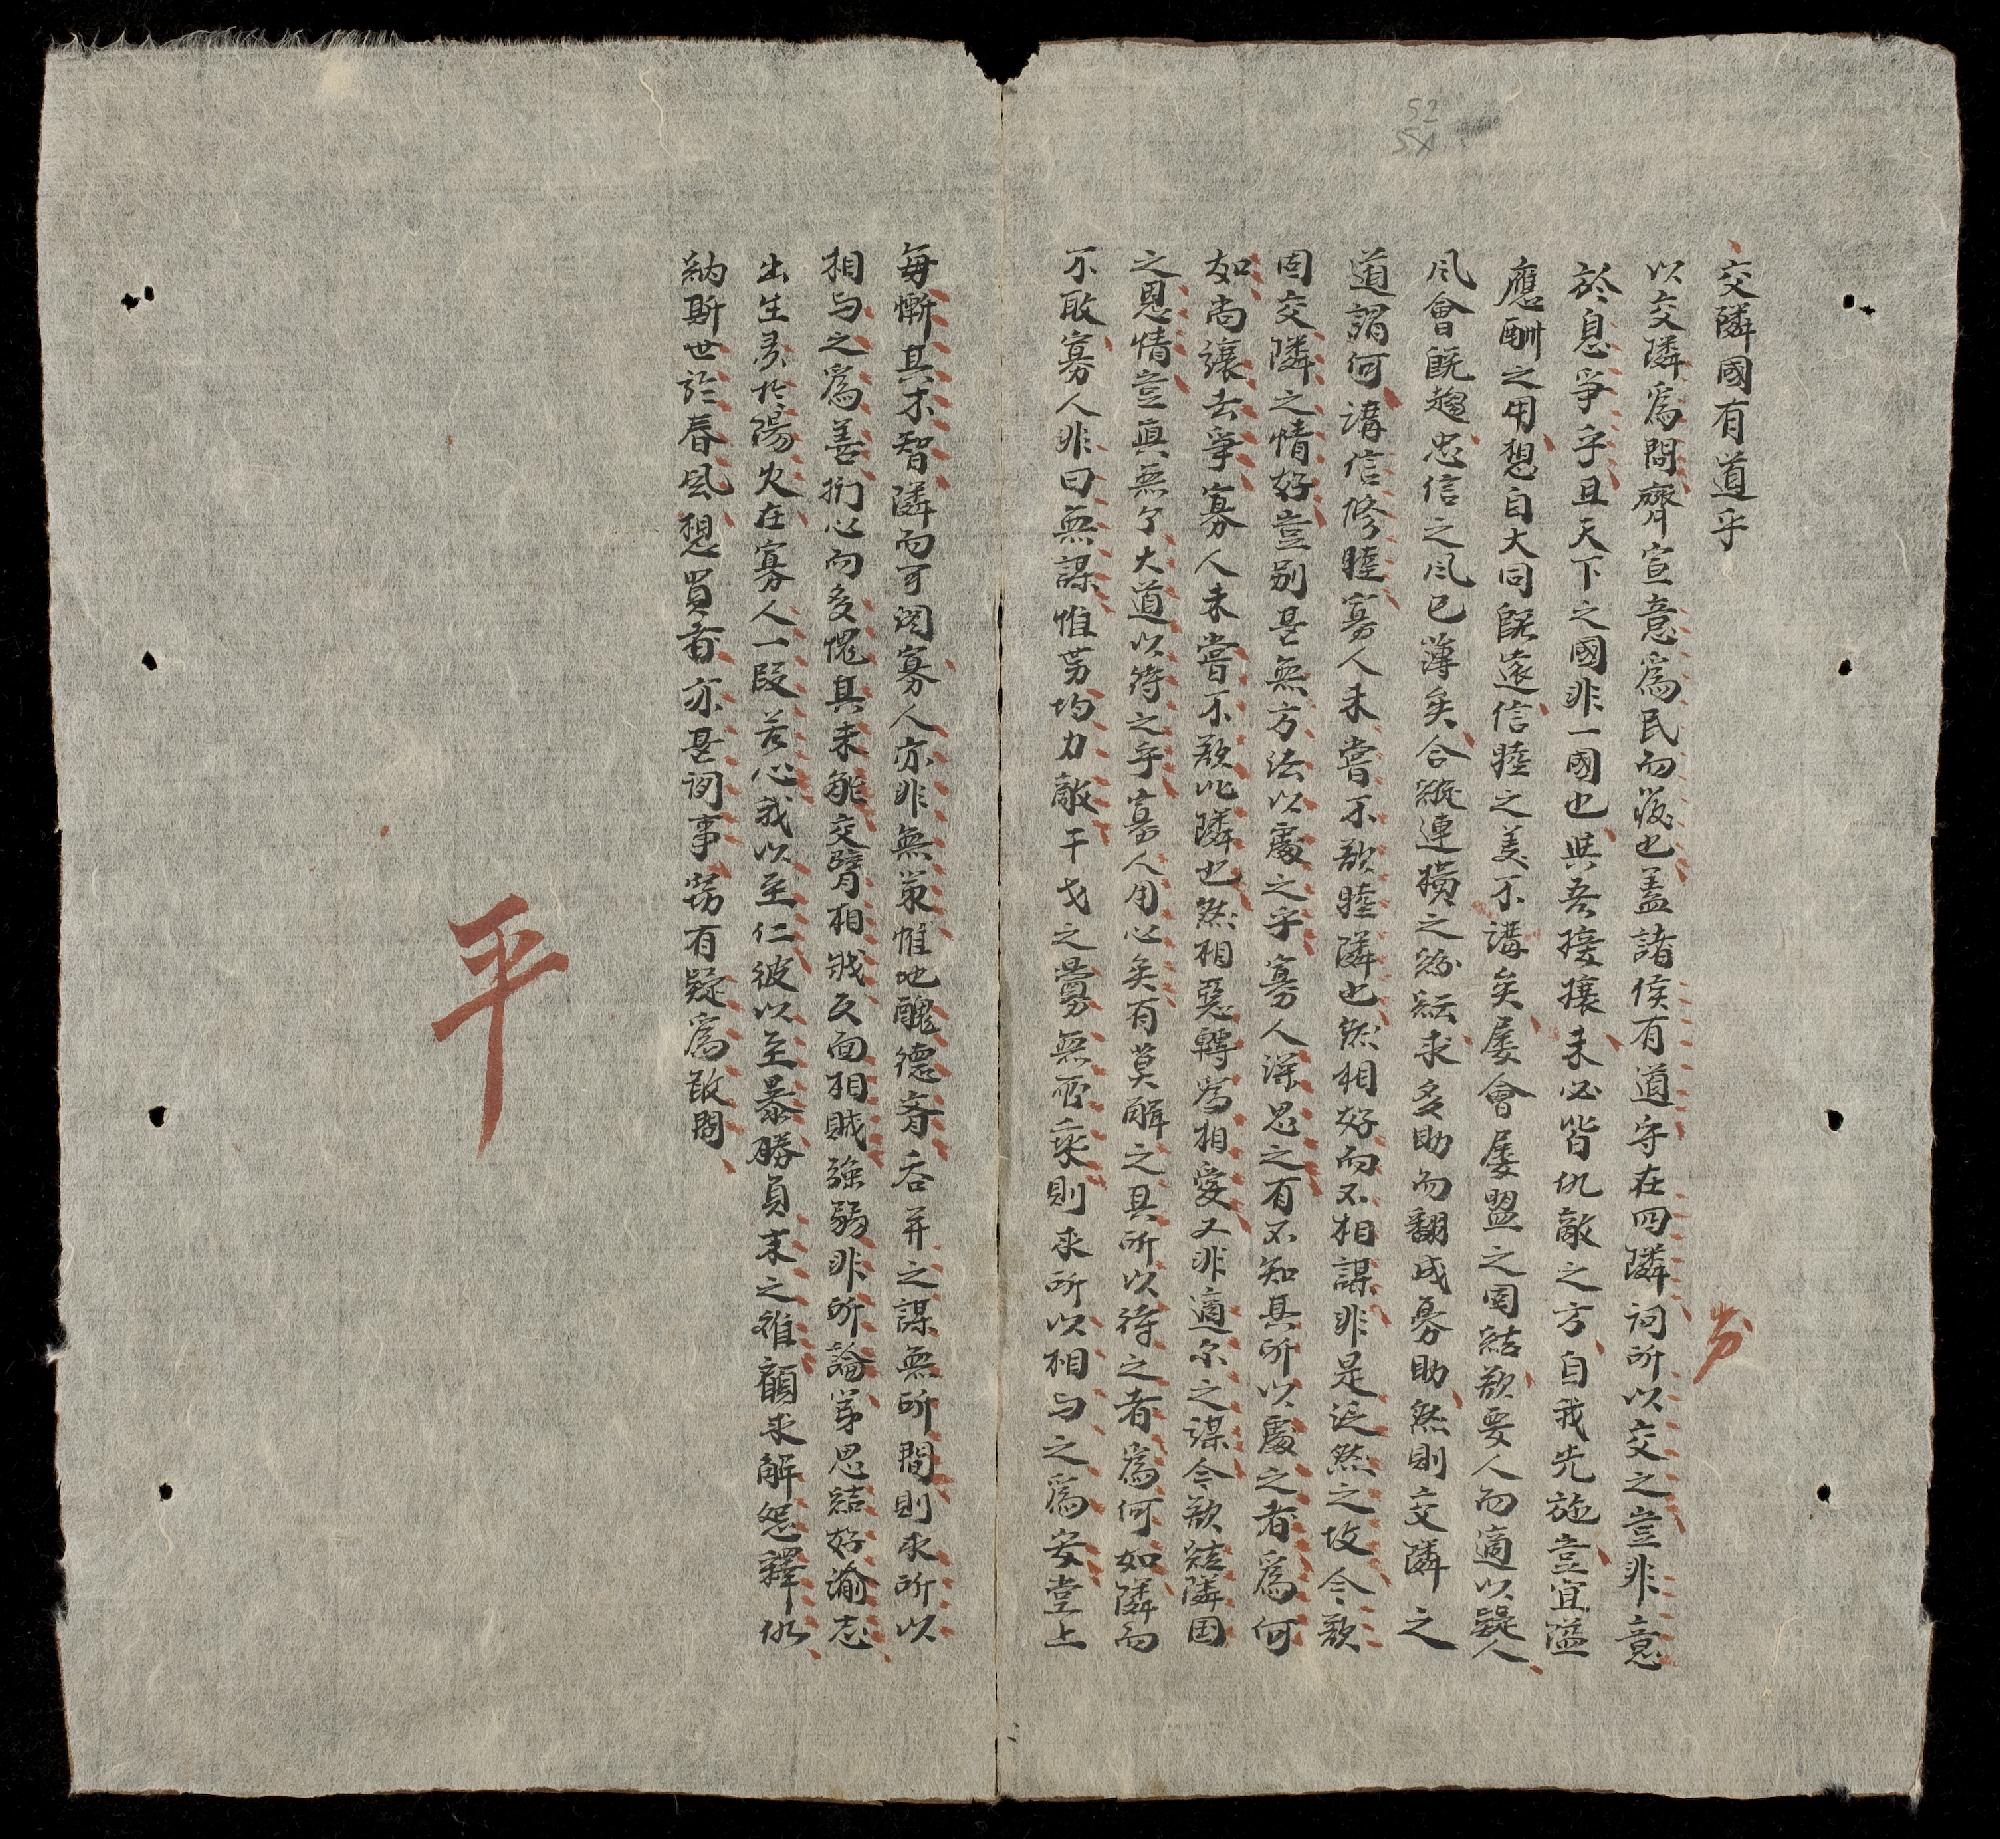 交隣國有道乎
以交隣爲問齊宣意爲民而發也盖諸侯有道守在四隣詞所以交之豈非意
於息爭乎且天下之國非一國也與吾接壤未必皆仇敵之方自我先施豈宜隘
應酬之用想自大同旣遠信睦之美不講矣屡會屡盟之固結欲要人而適以疑人
風會旣趨忠信之風已薄矣合縱連横之紛紜求多助而翻成寡助然則交隣之
道謂何講信修睦寡人未嘗不欲睦隣也然相好而不相謀非是泛然之故今欲
固交隣之情好豈別甚無方法以處之乎寡人深思之有不知其所以處之者爲何
如尚讓去爭寡人未嘗不欲比隣也然相惡轉爲相愛又非適尔之謀今欲結隣国
之恩情豈真無个大道以待之乎寡人用心矣有莫解之具所以待之者爲何如隣而
不敢寡人非曰無謀惟势均力敵干戈之釁無所乘則求所以相与之爲安堂上
每慚其才智隣而可図寡人亦非無策惟地醜德齊吞并之謀無所間則求所以
相与之爲善捫心而多愧其未能交臂相戕反面相賊強弱非所論弟思結好渝志
出生灵於湯火在寡人一段苦心我以至仁彼以至暴勝負未之雅顧求解怨釋仇
納斯世於春風想買者亦甚詞事势有疑爲敢問
平